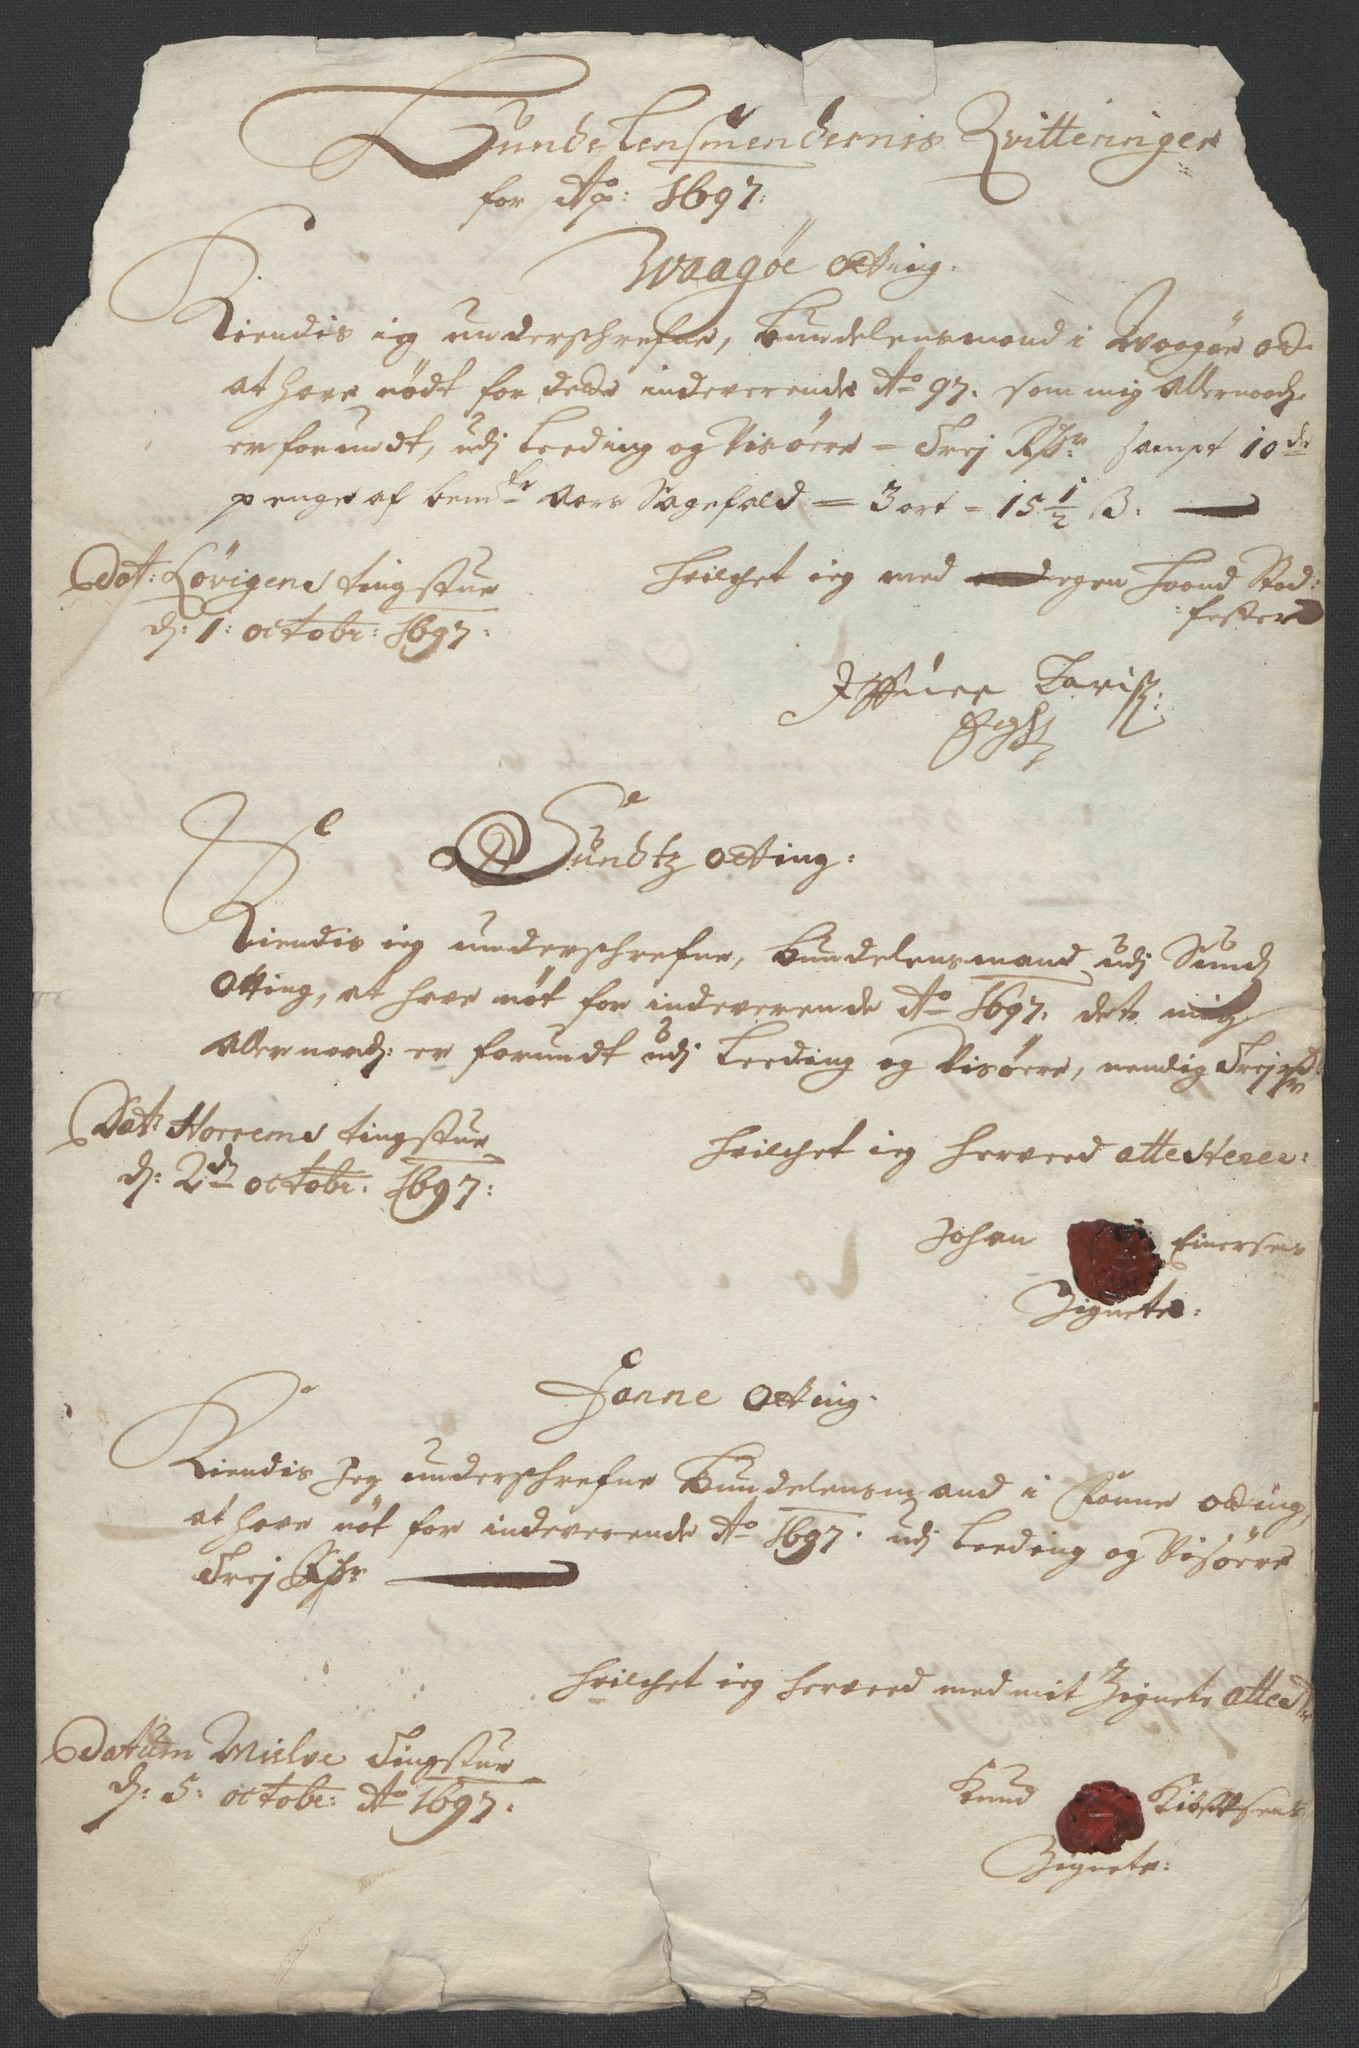 Bundelensmendernis Qvitteringer
for Ao: 1697:
Waagøe otting.
Kiendis ieg underschrefne, Bundelensmand i Waagøe ott.
at have nødt for dette indeverende Ao 97. som mig Allernaadg.
er forundt, udj Leeding og Visøere – Trej Rdr. sampt 10de
penge af bemte Aars Sagefald = 3 ort – 15 1/2 β.
Hvilchet ieg med egen Haand Stad:
:fester
Dat: Lövigens tingstue
d: 1: octobr: 1697:
Iffuer Larisz:
Sundtz otting:
Kiendis ieg underschrefne, Bundelensmand udj Sundz
Otting, at have nøt for indeverende Ao 1697. dets mig
Allernaad: er forundt udj Leeding og Visøere, nemlig Trej Rdr
Dat: Horrems tingstue
d: 2dn octobr. 1697:
Hvilchet ieg herved attesterer:
Johan Einersens
Zignete:
Fanne Otting.
Kiendis Jeg underschrefne Bundelensmand i Fanne otting,
at have nøt for indeverende Ao 1697. udj Leeding og Visøere
Trej Rdr
Hvilchet ieg herved med mit Zignete attester
Datum Mielve Tingstue
d: 5: octobr: Ao 1697:
Knud
Zignete: